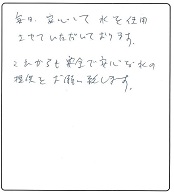 毎日、安心して 水を使用
させていただいております。
これからも安全で安心な水の
提供をお願い致します。